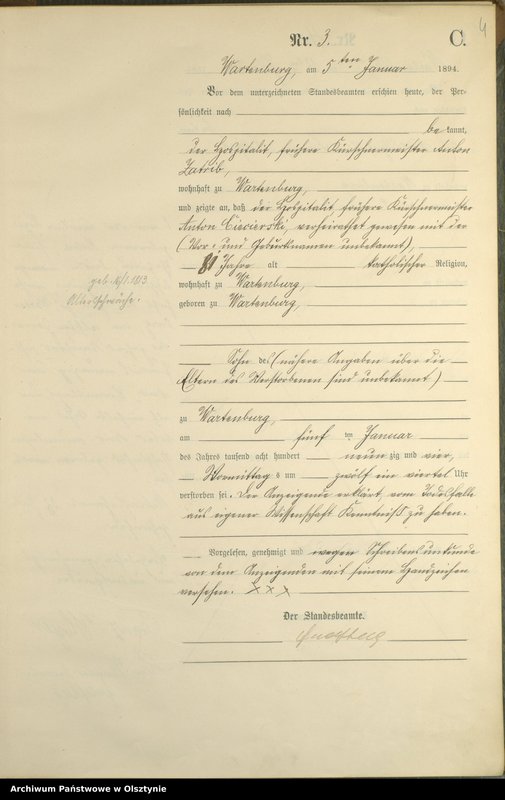 4
Nr. 3. C.
Wartenburg, am 5ten Januar 1894.
Vor dem unterzeichneten Standesbeamten erschien heute, der Per-
sönlichkeit nach
be kannt,
der Hospitalit, frühere Kürschnermeister Anton
wohnhaft zu Wartenburg,
und zeigte an, daß der Hospitalit frühere Kürschnermeister
Anton, verheirathet gewesen mit der
(Vor- und Geburtsnamen unbekannt),
81 Jahre alt katholischer Religion,
geb.
Altersschwäche.
wohnhaft zu Wartenburg,
geboren zu Wartenburg,
Sohn des (nähere Angaben über die
Eltern des Verstorbenen sind unbekannt)
zu Wartenburg,
am fünf ten Januar
des Jahres tausend acht hundert neunzig und vier,
Vormittags um zwölf ein viertel Uhr
verstorben sei. Der Anzeigende erklärt, vom Todesfalle
aus eigener Wissenschaft Kenntniß zu haben.
Vorgelesen, genehmigt und wegen Schreibensunkunde
von dem Anzeigenden mit seinem Handzeichen
versehen. x x x
Der Standesbeamte.
Archiwum Państwowe w Olsztynie